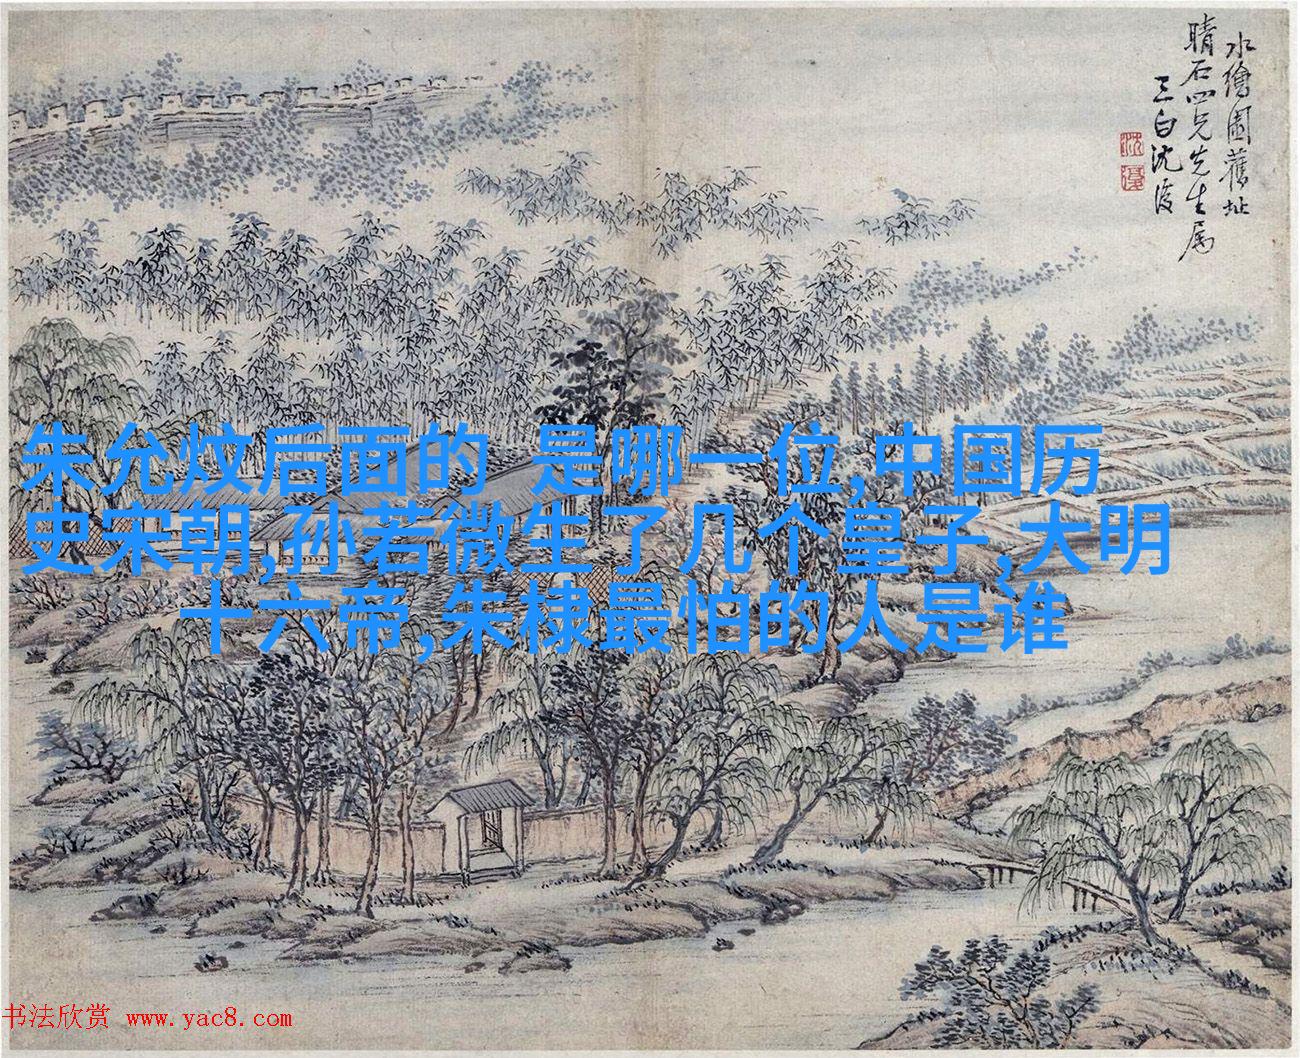 水繪園舊址
晴石四兄先生属
三白沈復
沈
復
朱允炆后面的 是哪一位,中国历
史宋朝,孙若微生了几个皇子,大明
十六帝,朱棣最怕的人是谁
书法欣赏 www.yac8.com